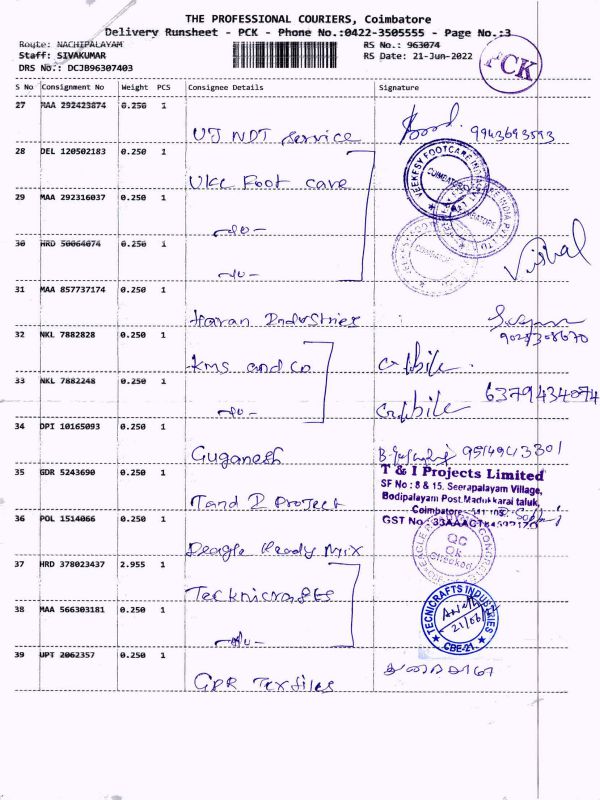 THE PROFESSIONAL COURIERS, Coimbatore
Delivery Runsheet - PCK - Phone No.:0422-3505555 - Page No.:3
Route: NACHIPALAYAM RS No.: 963074
Staff: SIVAKUMAR RS Date: 21-Jun-2022
DRS No.: DCJB96307403
PCK
S No Consignment No Weight PCS Consignee Details Signature
27 MAA 292423874 0.250 1
UJ NDT Service 9943693593
28 DEL 120502183 0.250 1
VKC Foot care
29 MAA 292316037 0.250 1
30 HRD 50064074 0.250 1
Vishal
31 MAA 857737174 0.250 1
Haran Industries
32 NKL 7882828 0.250 1
KMS and Co
33 NKL 7882248 0.250 1
6379434074
34 DPI 10165093 0.250 1
Guganesh
35 GDR 5243690 0.250 1
T & I Projects Limited
SF No : 8 & 15. Seerapalayam Village,
Bodipalayam Post.Madukkarai taluk,
Coimbatore
GST No
T and I Project
36 POL 1514066 0.250 1
QC
Ok
Checked
Deagle Ready Mix
37 HRD 378023437 2.955 1
Tecknicrafts
38 MAA 566303181 0.250 1
TECNICRAFTS INDUSTRIES
CBE-21.
39 UPT 2062357 0.250 1
GPR Textiles